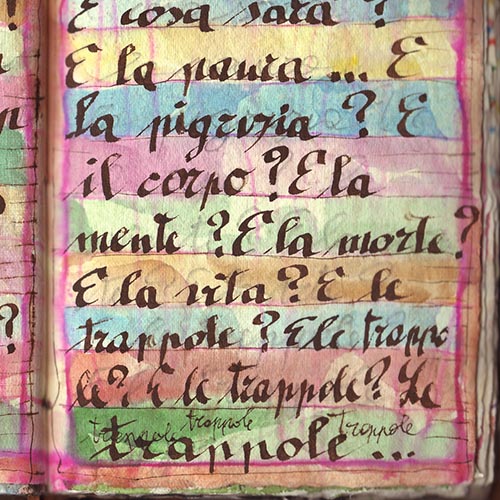 E cosa sarà?
E la paura ... E
la pigrizia? E
il corpo? E la
mente? E la morte?
E la vita? E le
trappole? E le trappo
le? E le trappole? Le
trappole trappole trappole
trappole ...